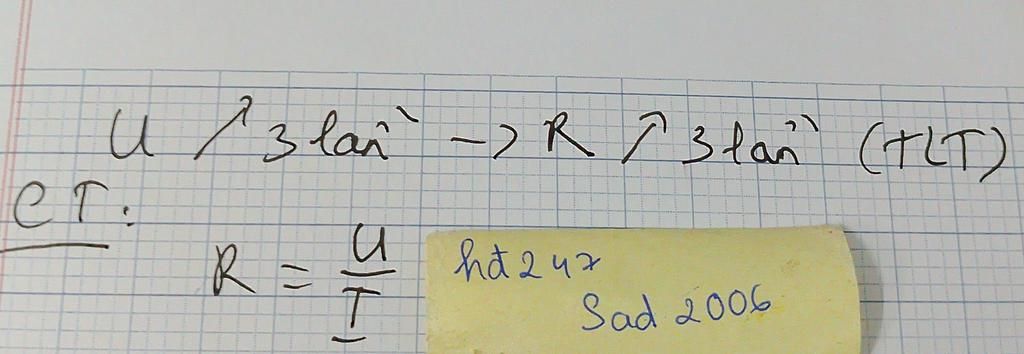 U ↗ 3 lần -> R ↗ 3 lần (TLT)
CT:
R = U / I
hđ247
Sad 2006